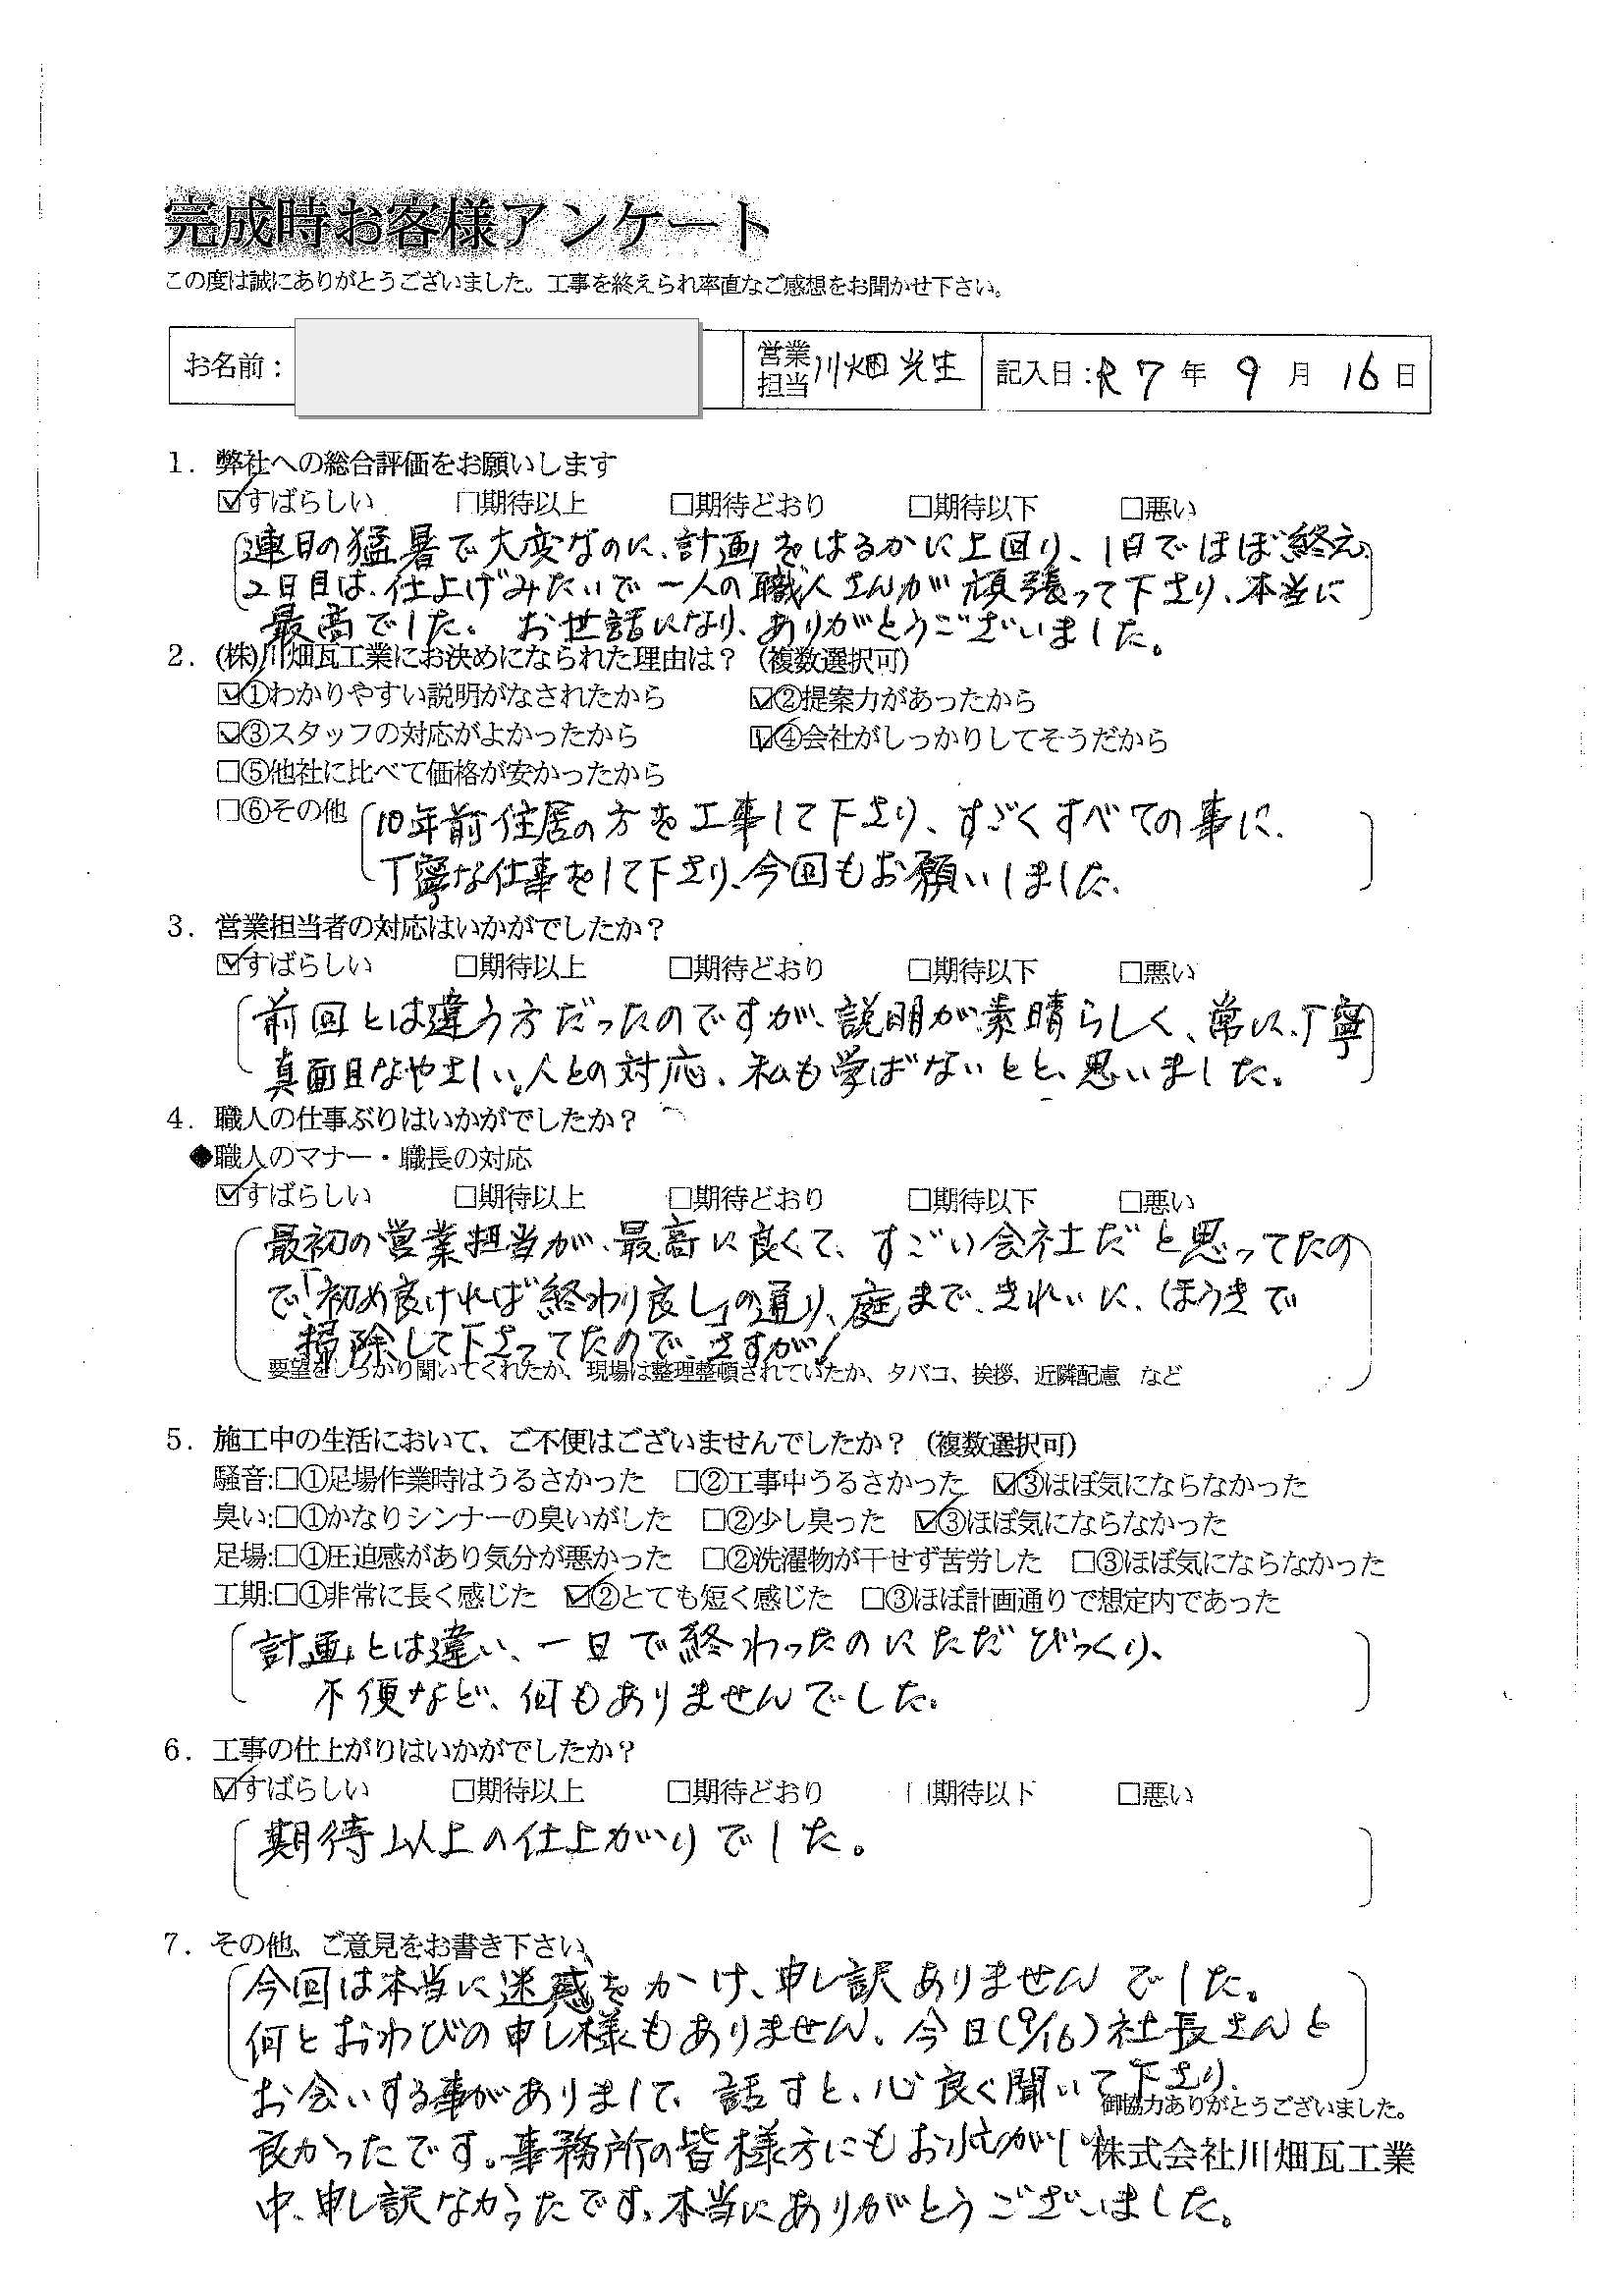 完成時お客様アンケート
この度は誠にありがとうございました。工事を終えられ率直なご感想をお聞かせ下さい。
お名前： 営業担当 川畑 光生 記入日：R 7 年 9 月 16 日
1．弊社への総合評価をお願いします
☑すばらしい □期待以上 □期待どおり □期待以下 □悪い
連日の猛暑で大変なのに、計画をはるかに上回り、1日でほぼ終え、
2日目は、仕上げみたいで一人の職人さんが頑張って下さり、本当に
最高でした。お世話になり、ありがとうございました。
2．(株)川畑瓦工業にお決めになられた理由は？（複数選択可）
☑①わかりやすい説明がなされたから ☑②提案力があったから
☑③スタッフの対応がよかったから ☑④会社がしっかりしてそうだから
□⑤他社に比べて価格が安かったから
□⑥その他 10年前住居の方を工事して下さり、すごくすべての事に、
丁寧な仕事をして下さり、今回もお願いしました、
3．営業担当者の対応はいかがでしたか？
☑すばらしい □期待以上 □期待どおり □期待以下 □悪い
前回とは違う方だったのですが、説明が素晴らしく、常に、丁寧
真面目なやさしい人との対応、私も学ばないとと、思いました。
4．職人の仕事ぶりはいかがでしたか？
◆職人のマナー・職長の対応
☑すばらしい □期待以上 □期待どおり □期待以下 □悪い
最初の営業担当が、最高に良くて、すごい会社だと思ってたの
で、「初め良ければ終わり良し」の通り、庭まで、きれいに、ほうきで
掃除して下さってたので、さすが!
要望をしっかり聞いてくれたか、現場は整理整頓されていたか、タバコ、挨拶、近隣配慮 など
5．施工中の生活において、ご不便はございませんでしたか？（複数選択可）
騒音:□①足場作業時はうるさかった □②工事中うるさかった ☑③ほぼ気にならなかった
臭い:□①かなりシンナーの臭いがした □②少し臭った ☑③ほぼ気にならなかった
足場:□①圧迫感があり気分が悪かった □②洗濯物が干せず苦労した □③ほぼ気にならなかった
工期:□①非常に長く感じた ☑②とても短く感じた □③ほぼ計画通りで想定内であった
計画とは違い、一日で終わったのにただびっくり、
不便など、何もありませんでした。
6．工事の仕上がりはいかがでしたか？
☑すばらしい □期待以上 □期待どおり □期待以下 □悪い
期待以上の仕上がりでした。
7．その他、ご意見をお書き下さい、
今回は本当に迷惑をかけ、申し訳ありませんでした。
何とおわびの申し様もありません、今日(9/16)社長さんと
お会いする事がありまして、話すと、心良く聞いて下さり、
御協力ありがとうございました。
良かったです。事務所の皆様方にもお忙がしい
株式会社川畑瓦工業
中、申し訳なかったです、本当にありがとうございました。